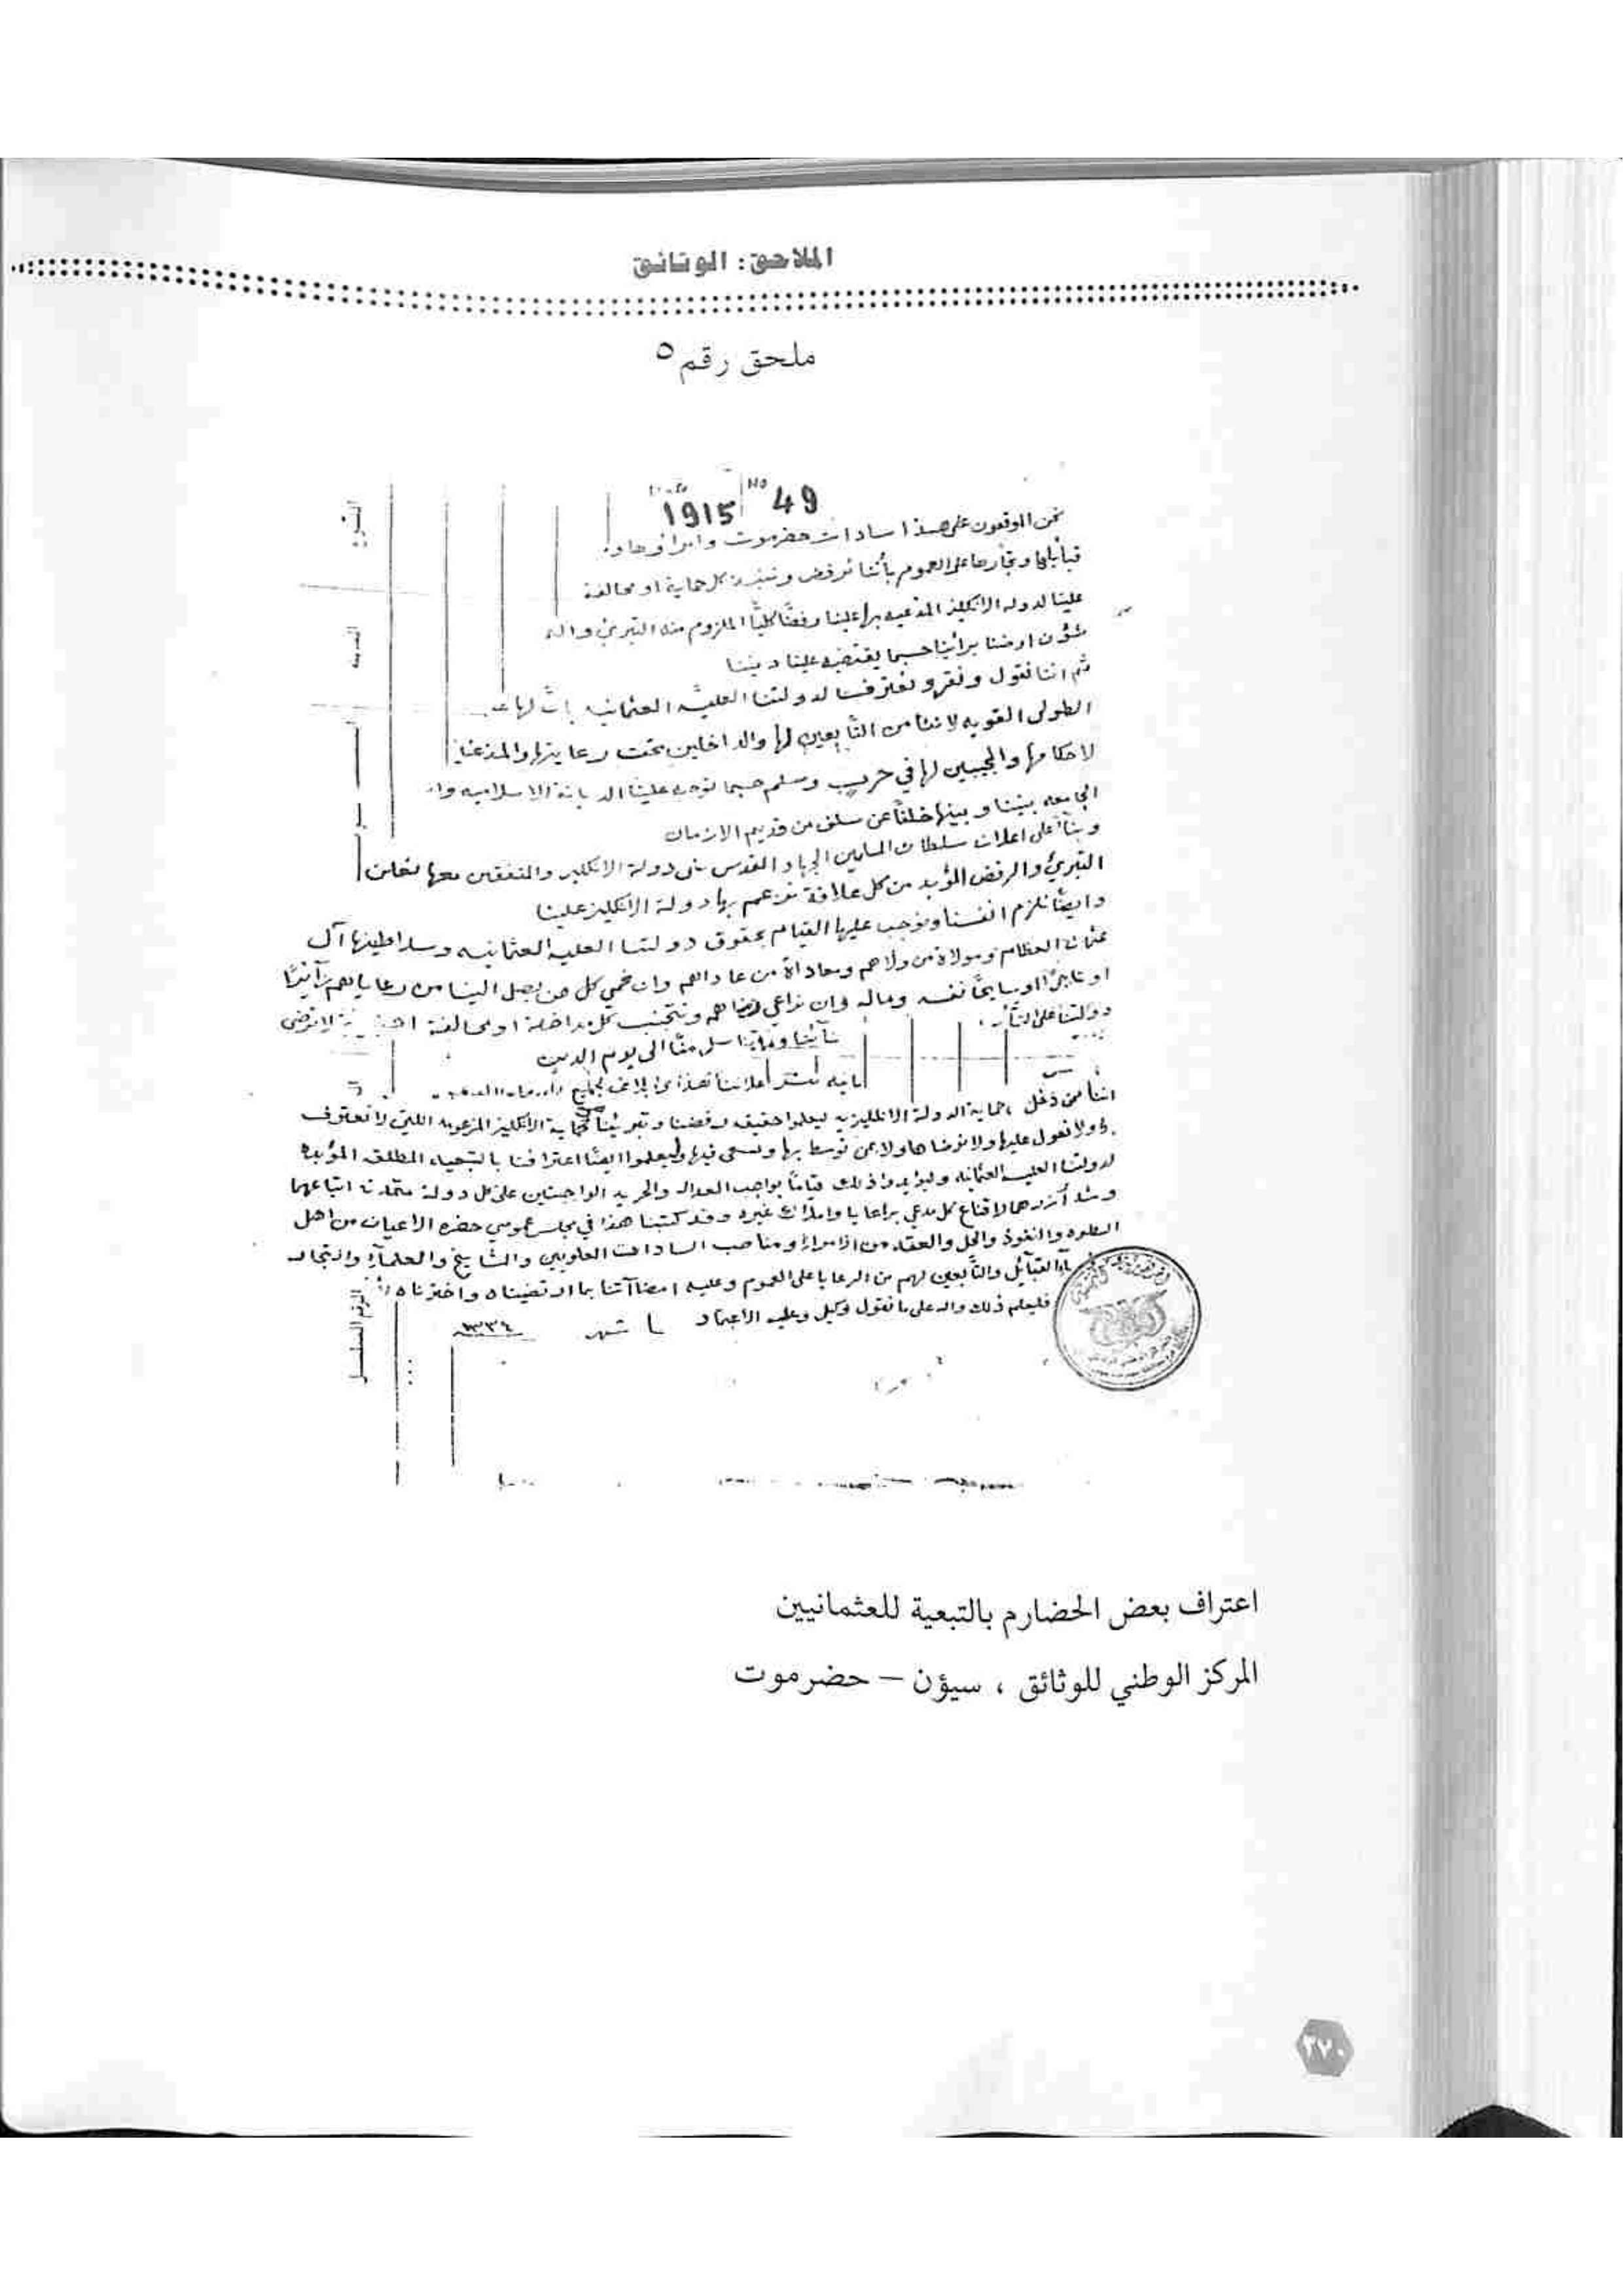 الملاحق: الوثائق
ملحق رقم ٥
1915 No 49
نحن الموقعون على هذا سادات حضرموت وامراؤها و
قبائلها وتجارها على العموم بأننا نرفض وننبذ كل حماية او محالفة
علينا لدولة الانكليز المدعيه بها علينا رفضًا كليًا الملزوم منه التبريئ
شؤن ارضنا برائينا حسبما يقتضيه علينا ديننا
ثم اننا نقول ونقر ونعترف لدولتنا العليّه العثمانيه بأن لها
الطولى القويه لاننا من التّابعين لها والداخلين تحت رعايتها والمذعنين
لاحكامها والمجيبين لها في حرب وسلم حسبما توجبه علينا الديانة الاسلاميه
الجامعه بيننا وبينها خلفًا عن سلف من قديم الازمان
وبنأً على اعلان سلطان المسلمين الجهاد المقدس على دولة الانكليز والمتفقين معها نعلن
التبريئ والرفض المؤبد من كل علاقة تزعم بها دولة الانكليز علينا
وايضًا نلزم انفسنا ونوجب عليها القيام بحقوق دولتنا العليه العثمانيه وسلاطينها آل
عثمان العظام وموالاة من ولاهم ومعاداة من عاداهم وان نحمي كل من يصل الينا من رعاياهم زآئيرًا
او تاجرًا او سايحًا نفسه وماله وان نراعي رضاهم ونتجنب كل مداخلة او محالفة لا ترضى
دولتنا على
سل منّا الى يوم الدين
اعلاننا هذا
اننا من دخل حماية الدولة الانكليزيه ليعلموا حقيقة رفضنا وتبريئنا من حماية الانكليز المزعومه اللتي لا نعترف
ولا نعول عليها ولا نرضاها ولا بمن توسط بها وتسعى فيها وليعلموا ايضًا اعترافنا بالتبعيه المطلقه المؤبده
لدولتنا العليه العثمانيه وليؤيدوا ذلك قيامًا بواجب العداله والحريه الواجبتين على كل دولة متمدنة اتباعهما
وشد أزرهما لاقناع كل مدعي برعايا واملاك غيره وقد كتبنا هذا في مجلس عمومي حضره الاعيان من اهل
السطوه والنفوذ والحل والعقد من الامراء ومناصب السادات العلويين والمشايخ والعلمآء والتجار
القبآئل والتّابعين لهم من الرعايا على العموم وعليه امضاآتنا بما ارتضيناه واخترناه
فليعلم ذلك والله على ما نقول وكيل وعليه الاعتماد شهر ١٣٣٤
الرقم المسلسل
اعتراف بعض الحضارم بالتبعية للعثمانيين
المركز الوطني للوثائق ، سيؤن – حضرموت
٢٧٠